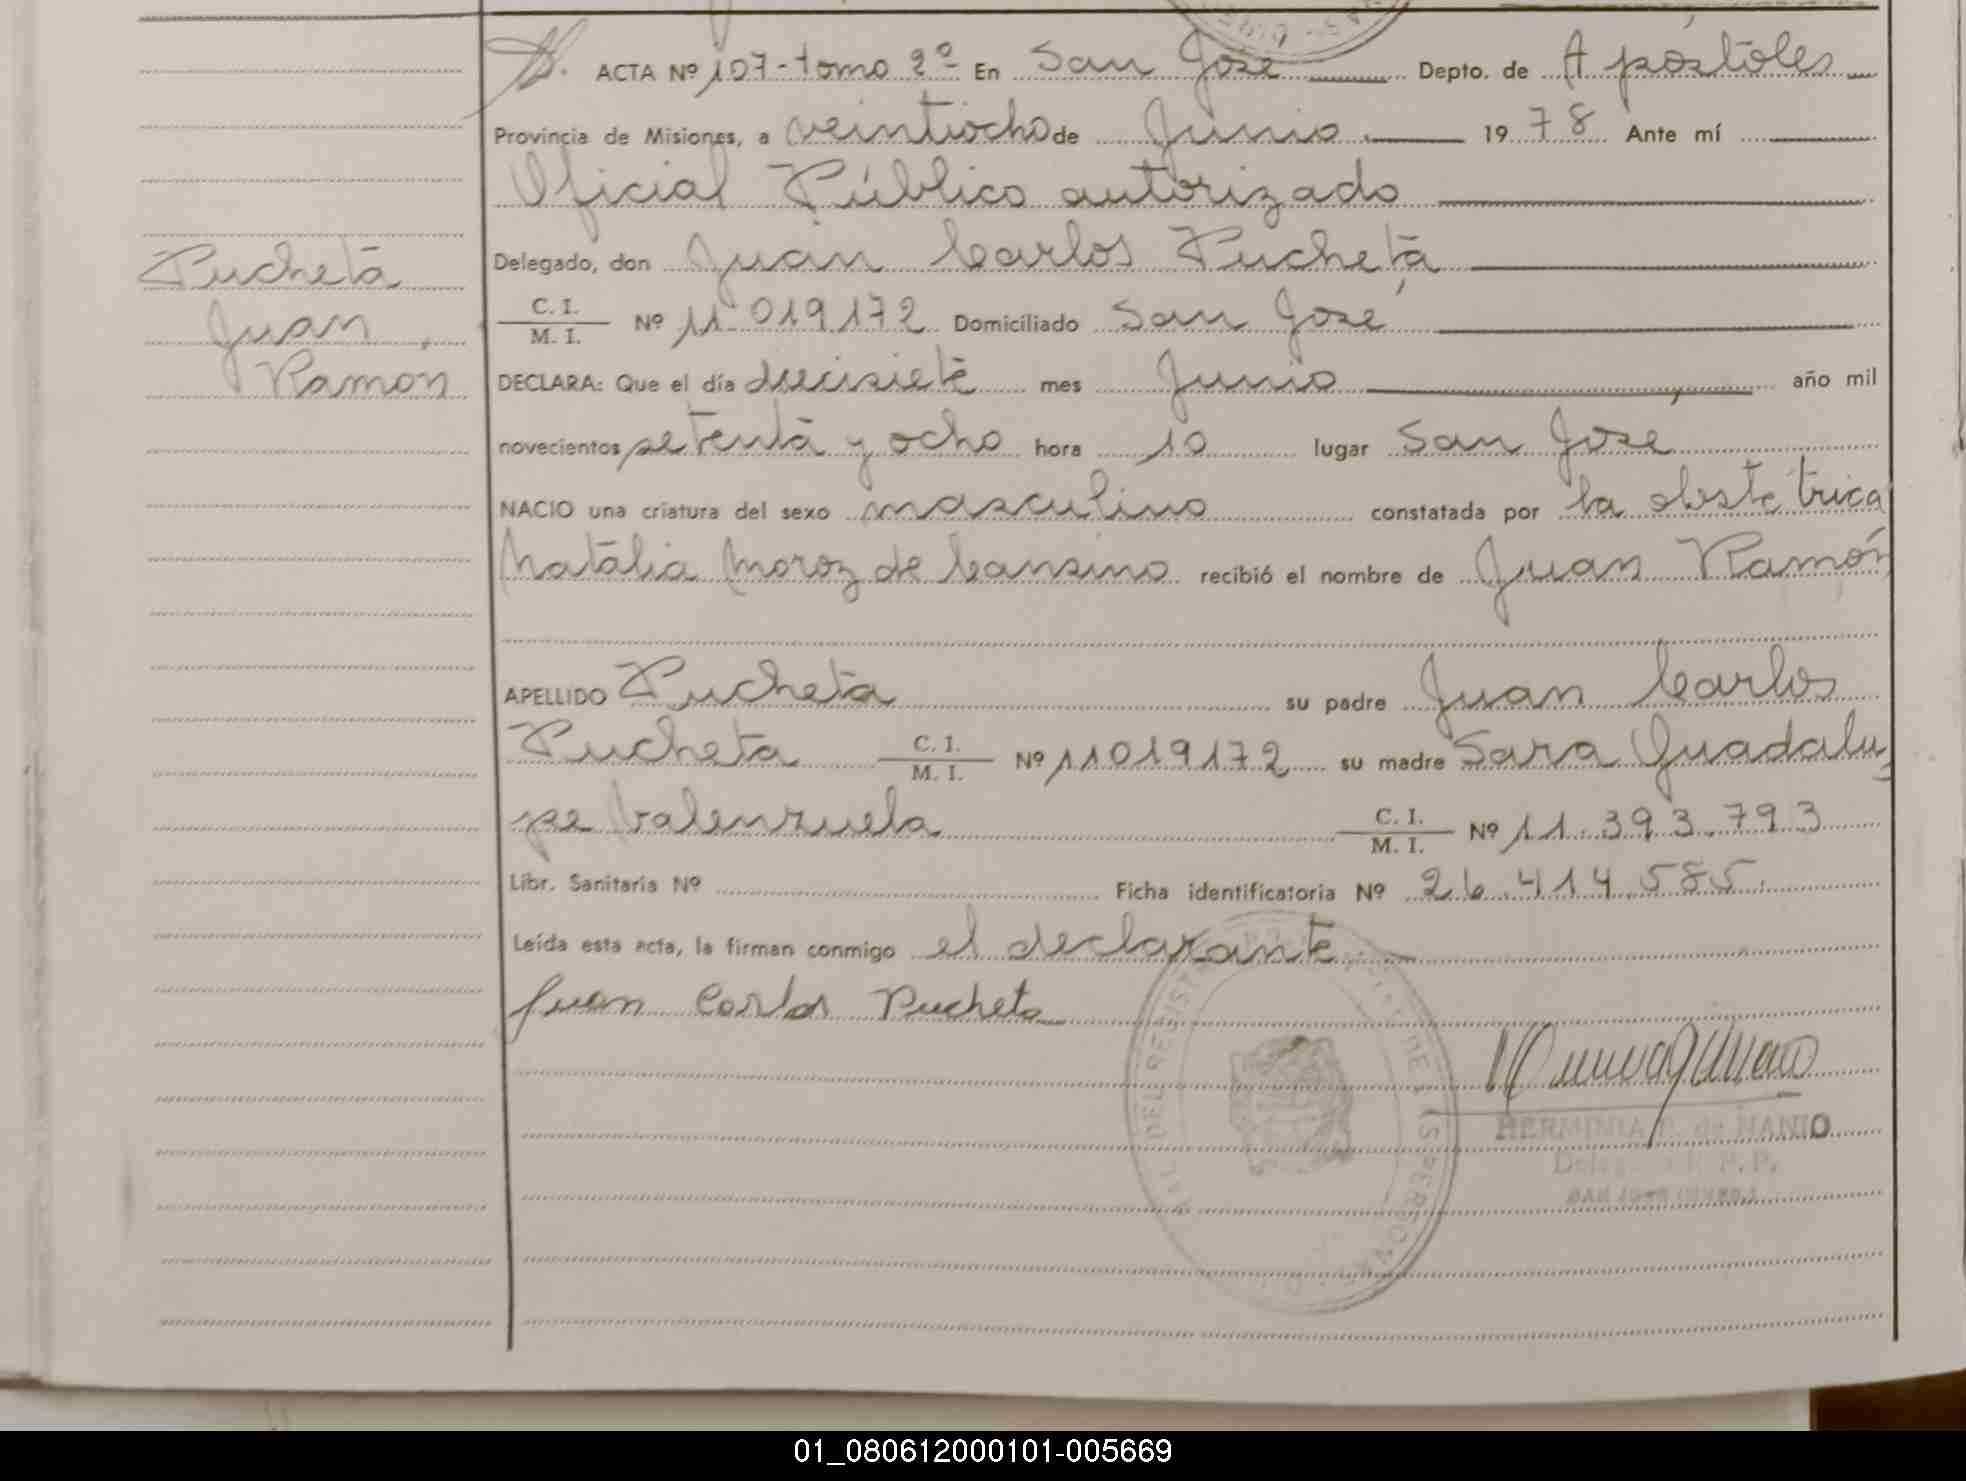 ACTA Nº 107-tomo 2º En San José Depto. de Apóstoles
Provincia de Misiones, a veintiocho de Junio 1978 Ante mí
Oficial Público autorizado
Delegado, don Juan Carlos Pucheta
C. I.
M. I. Nº 11.019172 Domiciliado San José
DECLARA: Que el día diecisiete mes Junio año mil
novecientos setenta y ocho hora 10 lugar San José
NACIO una criatura del sexo masculino constatada por la obstetrica
Natalia Moroz de Cansino recibió el nombre de Juan Ramón
APELLIDO Pucheta su padre Juan Carlos
Pucheta C. I.
M. I. Nº 11019172 su madre Sara Guadalu
pe Valenzuela C. I.
M. I. Nº 11.393.793
Libr. Sanitaria Nº Ficha identificatoria Nº 26.414.585.
Leída esta acta, la firman conmigo el declarante
Juan Carlos Pucheta
HERMINIA de
Pucheta
Juan
Ramon
01_080612000101-005669